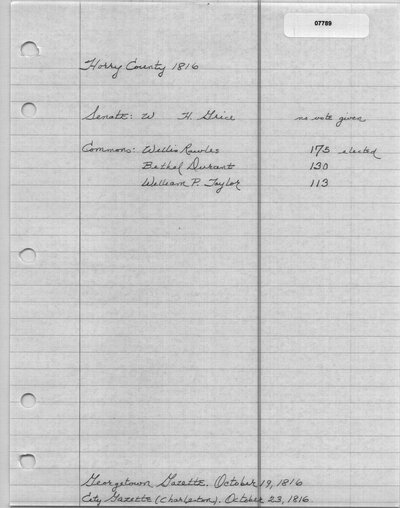 07789
Horry County 1816
Senate: W H. Grice no vote given
Commons: Willis Rowles 175 elected
Bethel Durant 130
William P. Taylor 113
Georgetown Gazette. October 19, 1816
City Gazette (Charleston). October 23, 1816.